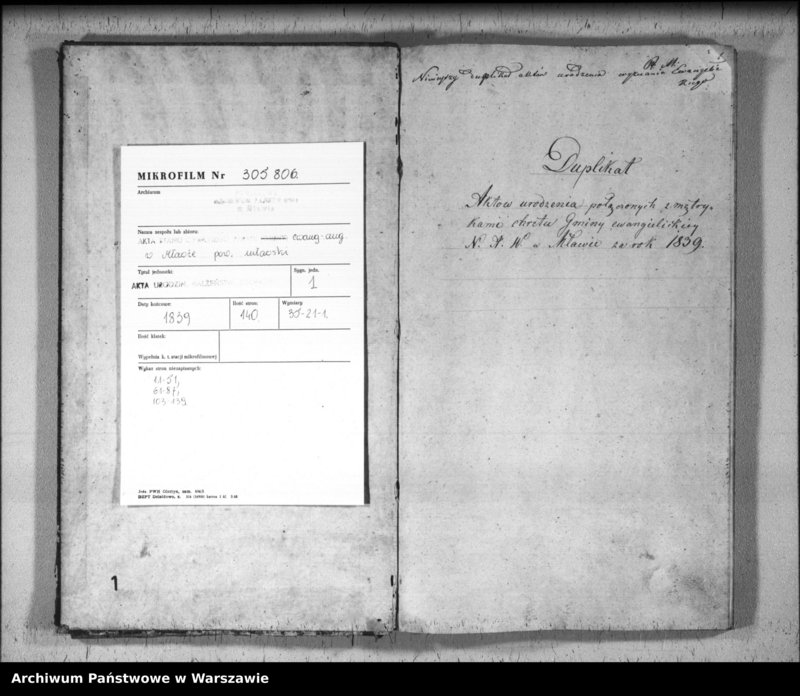 MIKROFILM Nr 305 806.
Archiwum
Nazwa zespołu lub zbioru:
AKTA STANU CYWILNEGO ewang-aug.
w Mławie pow. mławski
Tytuł jednostki:
Sygn. jedn.
AKTA URODZEŃ 1
Daty końcowe:
Ilość stron:
Wymiary
1839
140
35-21-1.
Ilość klatek:
Wypełnia k. t. stacji mikrofilmowej
Wykaz stron niezapisanych:
11-51,
61-87,
103-139.
1
Niniejszy duplikat aktów urodzenia wyznania Ewangelic
kiego
Duplikat
Aktow urodzenia połączonych z metry-
kami chrztu Gminy ewangielickiey
N. N. W. w Mławie za rok 1839.
Archiwum Państwowe w Warszawie